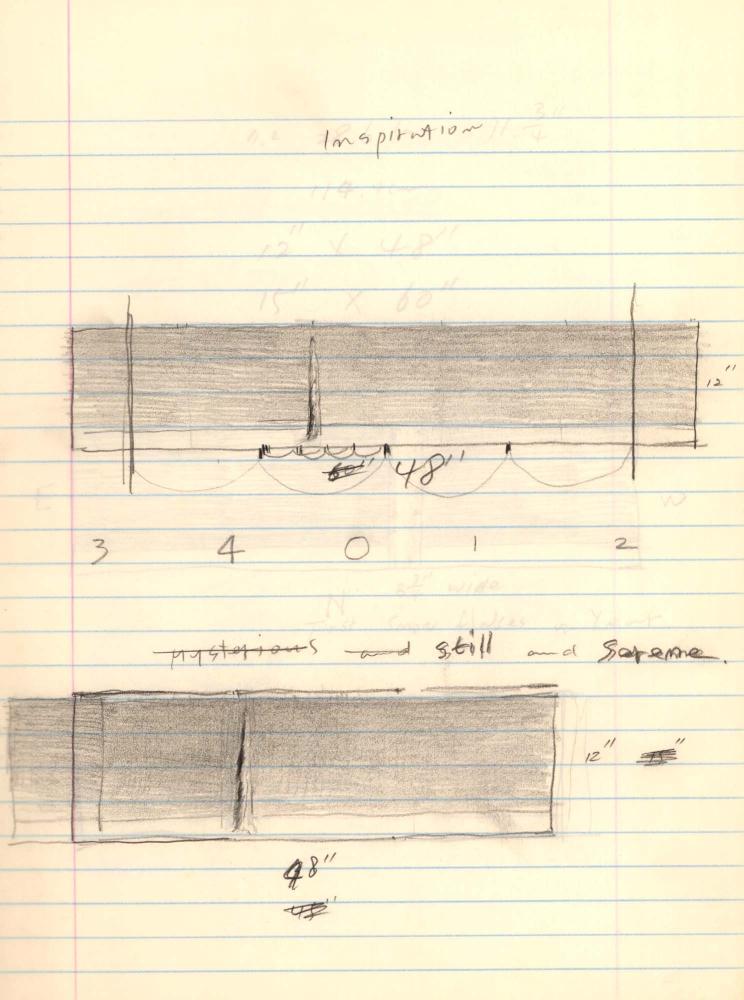 Inspiration
12" x 48"
15" x 60"
12"
48"
3 4 0 1 2
E W
N wide
mysterious and still and serene.
12"
48"